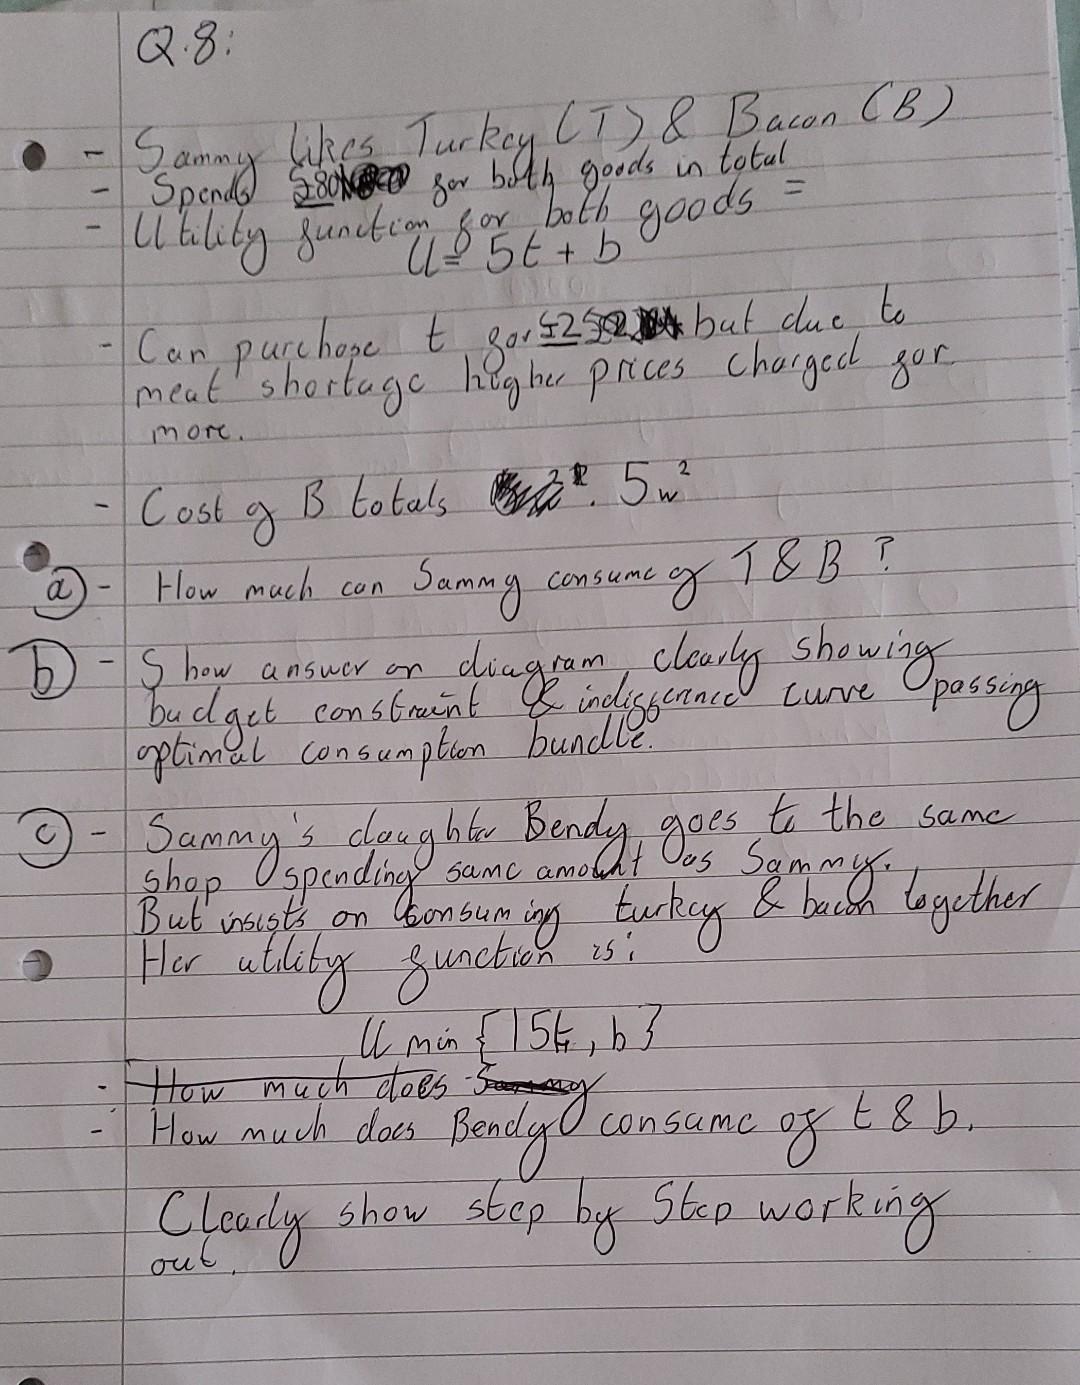 Q.8:
- Sammy likes Turkey (T) & Bacon (B)
- Spends £80 for both goods in total
- Utility function for both goods =
U= 5t + b
- Can purchase t for £2 but due to
meat shortage higher prices charged for
more.
- Cost of B totals 5w²
a) - How much can Sammy consume of T & B?
b) - Show answer on diagram clearly showing
budget constraint & indifference curve passing
optimal consumption bundle.
c) - Sammy's daughter Bendy goes to the same
shop spending same amount as Sammy.
But insists on consuming turkey & bacon together
Her utility function is:
U min {15t, b}
- How much does Sammy
- How much does Bendy consume of t & b.
Clearly show step by step working
out.